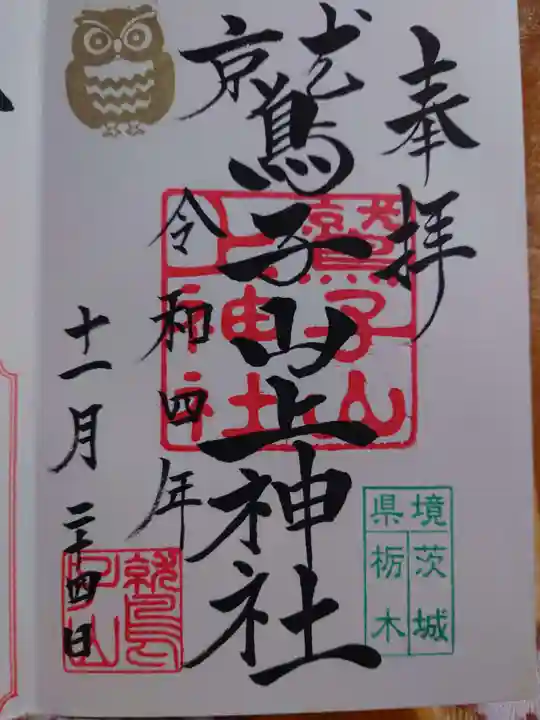 奉拝
鷲子山上神社
令和四年
十一月二十四日
鷲子山
上神社
境
茨城
県
栃木
鷲
子山